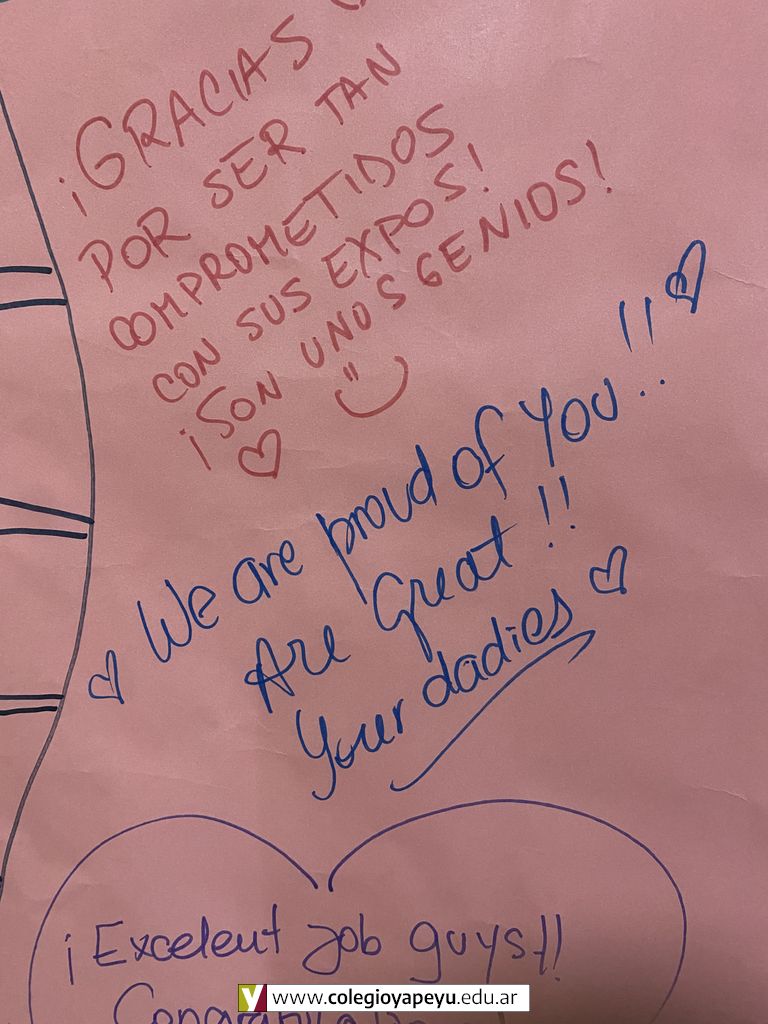 ¡GRACIAS
POR SER TAN
COMPROMETIDOS
CON SUS EXPOS!
¡SON UNOS GENIOS!
We are proud of You!!
Are Great!!
Your dadies
¡Excelent job guys!!
www.colegioyapeyu.edu.ar